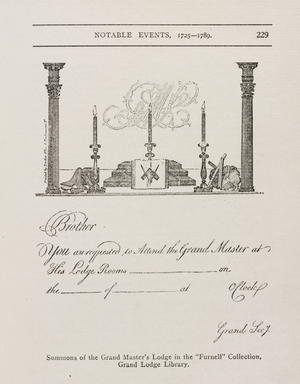 NOTABLE EVENTS, 1725—1789. 229
Brother
You are requested to Attend the Grand Master at
His Lodge Rooms ____________ on
the ______ of ______ at ______ O'Clock
Grand Secy.
Summons of the Grand Master's Lodge in the "Furnell" Collection,
Grand Lodge Library.